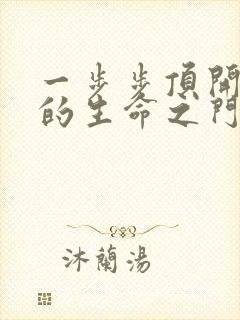 一步步頂開
的生命之門
沐蘭湯